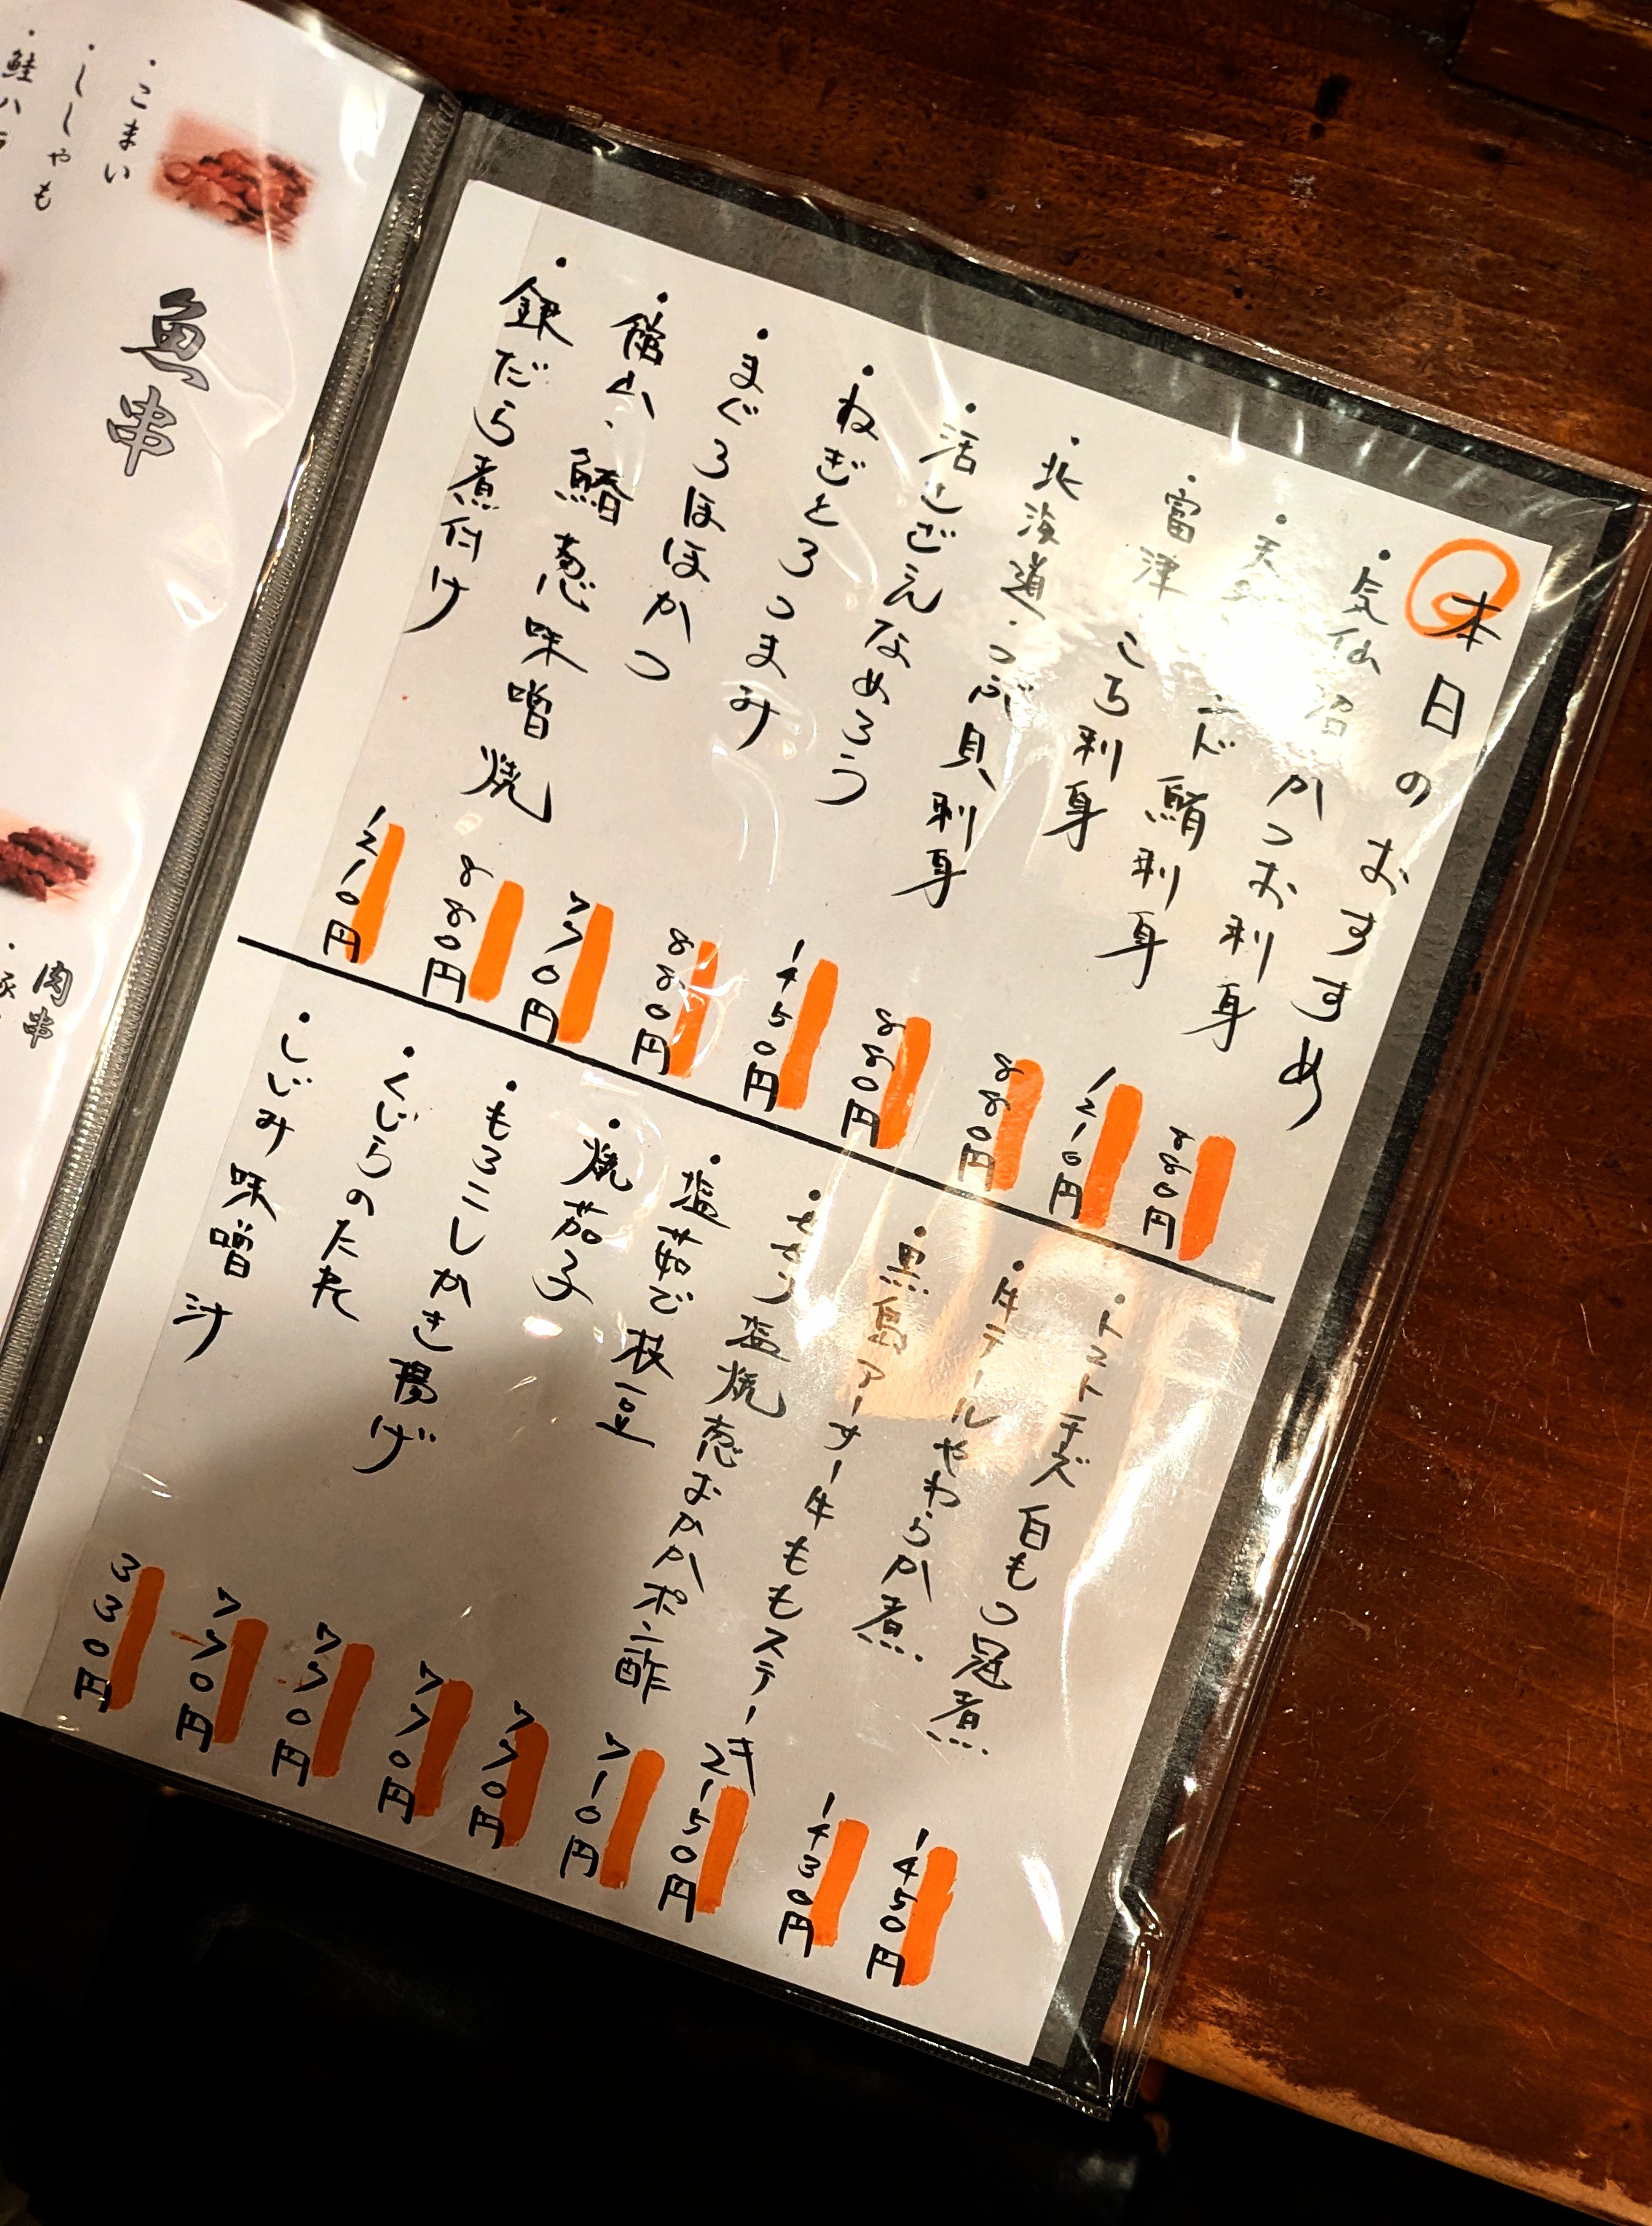 本日のおすすめ
・気仙沼 かつお刺身 880円
・天 鮪刺身 1210円
・富津 こち刺身 880円
・北海道・つぶ貝刺身 880円
・活さざえんなめろう 1450円
・ねぎとろつまみ 880円
・まぐろほほかつ 770円
・館山・鰆葱味噌焼 880円
・銀だら煮付け 1210円
・トマトチーズ白もつ煮 1450円
・牛テールやわらか煮 1430円
・黒島アーサー牛ももステーキ 2150円
・塩焼葱おかかポン酢 710円
・塩茹で枝豆 770円
・焼茄子 770円
・もろこしかき揚げ 770円
・くじらのたれ 770円
・しじみ味噌汁 330円
・こまい
・ししゃも
・鮭ハラ
魚串
肉串